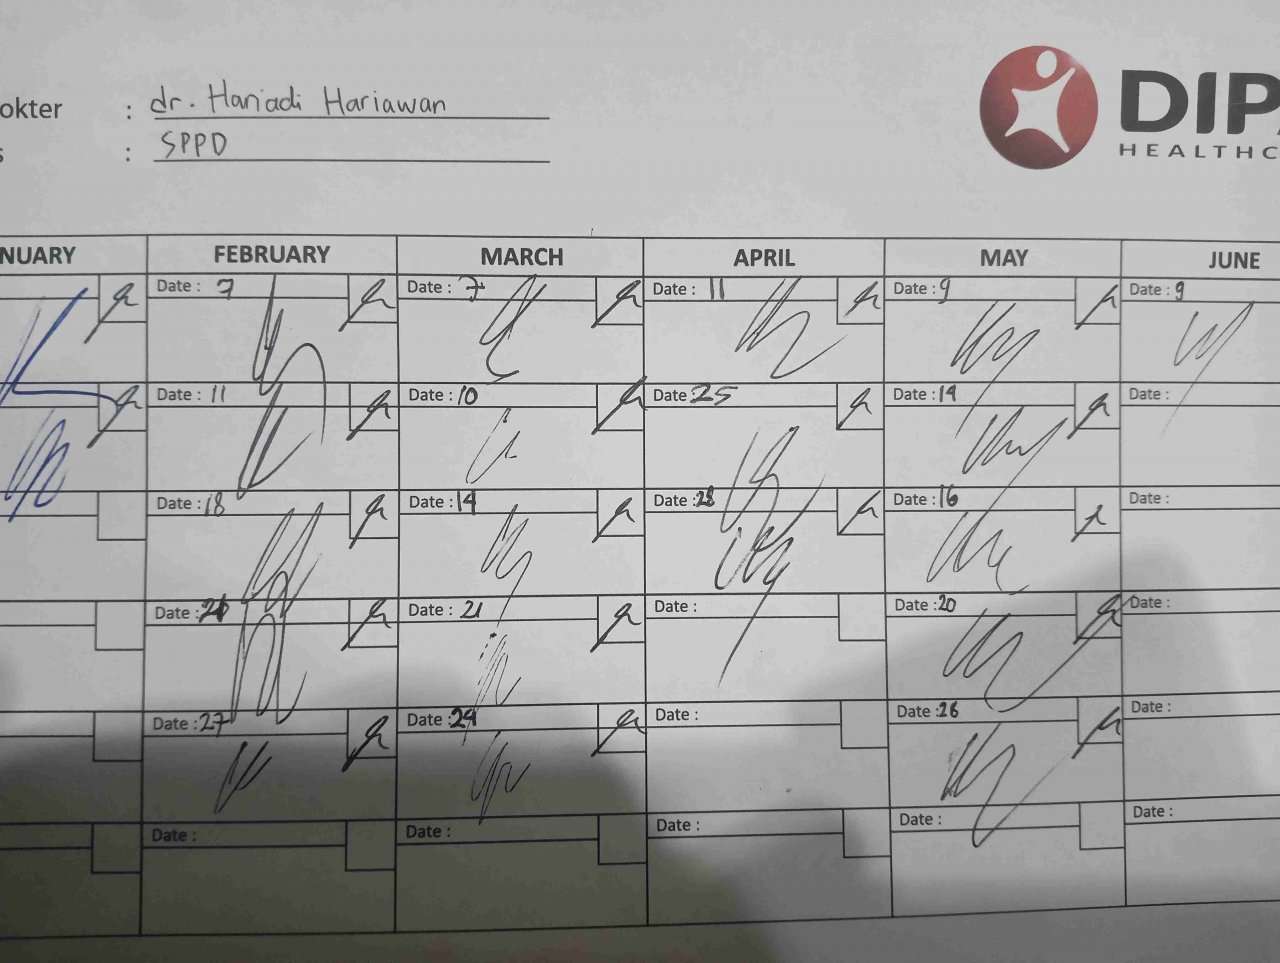 okter : dr. Hariadi Hariawan
s : SPPD
DIP
HEALTHC
NUARY FEBRUARY MARCH APRIL MAY JUNE
Date : 7 Date : 7 Date : 11 Date : 9 Date : 9
Date : 11 Date : 10 Date : 25 Date : 14 Date :
Date : 18 Date : 14 Date : 28 Date : 16 Date :
Date : Date : 21 Date : Date : 20 Date :
Date : 27 Date : 24 Date : Date : 26 Date :
Date : Date : Date : Date : Date :